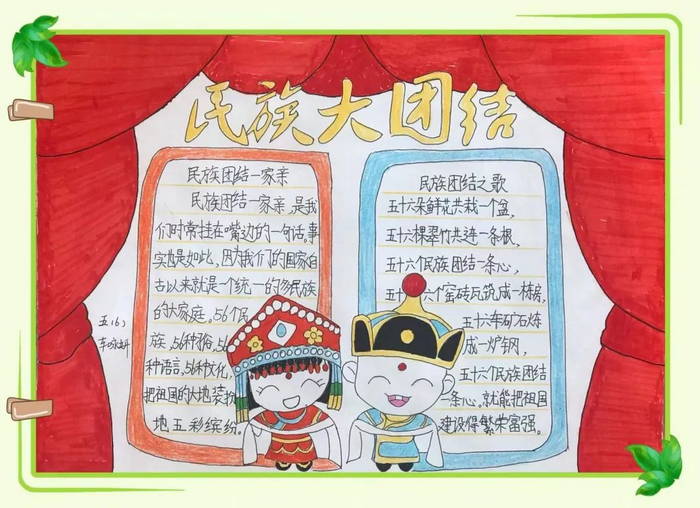 民族大团结
民族团结一家亲
民族团结一家亲,是我
们时常挂在嘴边的一句话。事
实当是如此,因为我们的国家自
古以来就是一个统一的多民族
的大家庭。56个民
族,56种俗,5
种语言,56种文化,
把祖国的大地装扮
地五彩缤纷。
民族团结之歌
五十六朵鲜花共栽一个盆,
五十六棵翠竹共连一条根,
五十六个民族团结一条心,
六个窑砖瓦筑成一栋房,
五十六车矿石炼
成一炉钢,
五十六个民族团结
一条心,就能把祖国
建设得繁荣富强。
五(6)